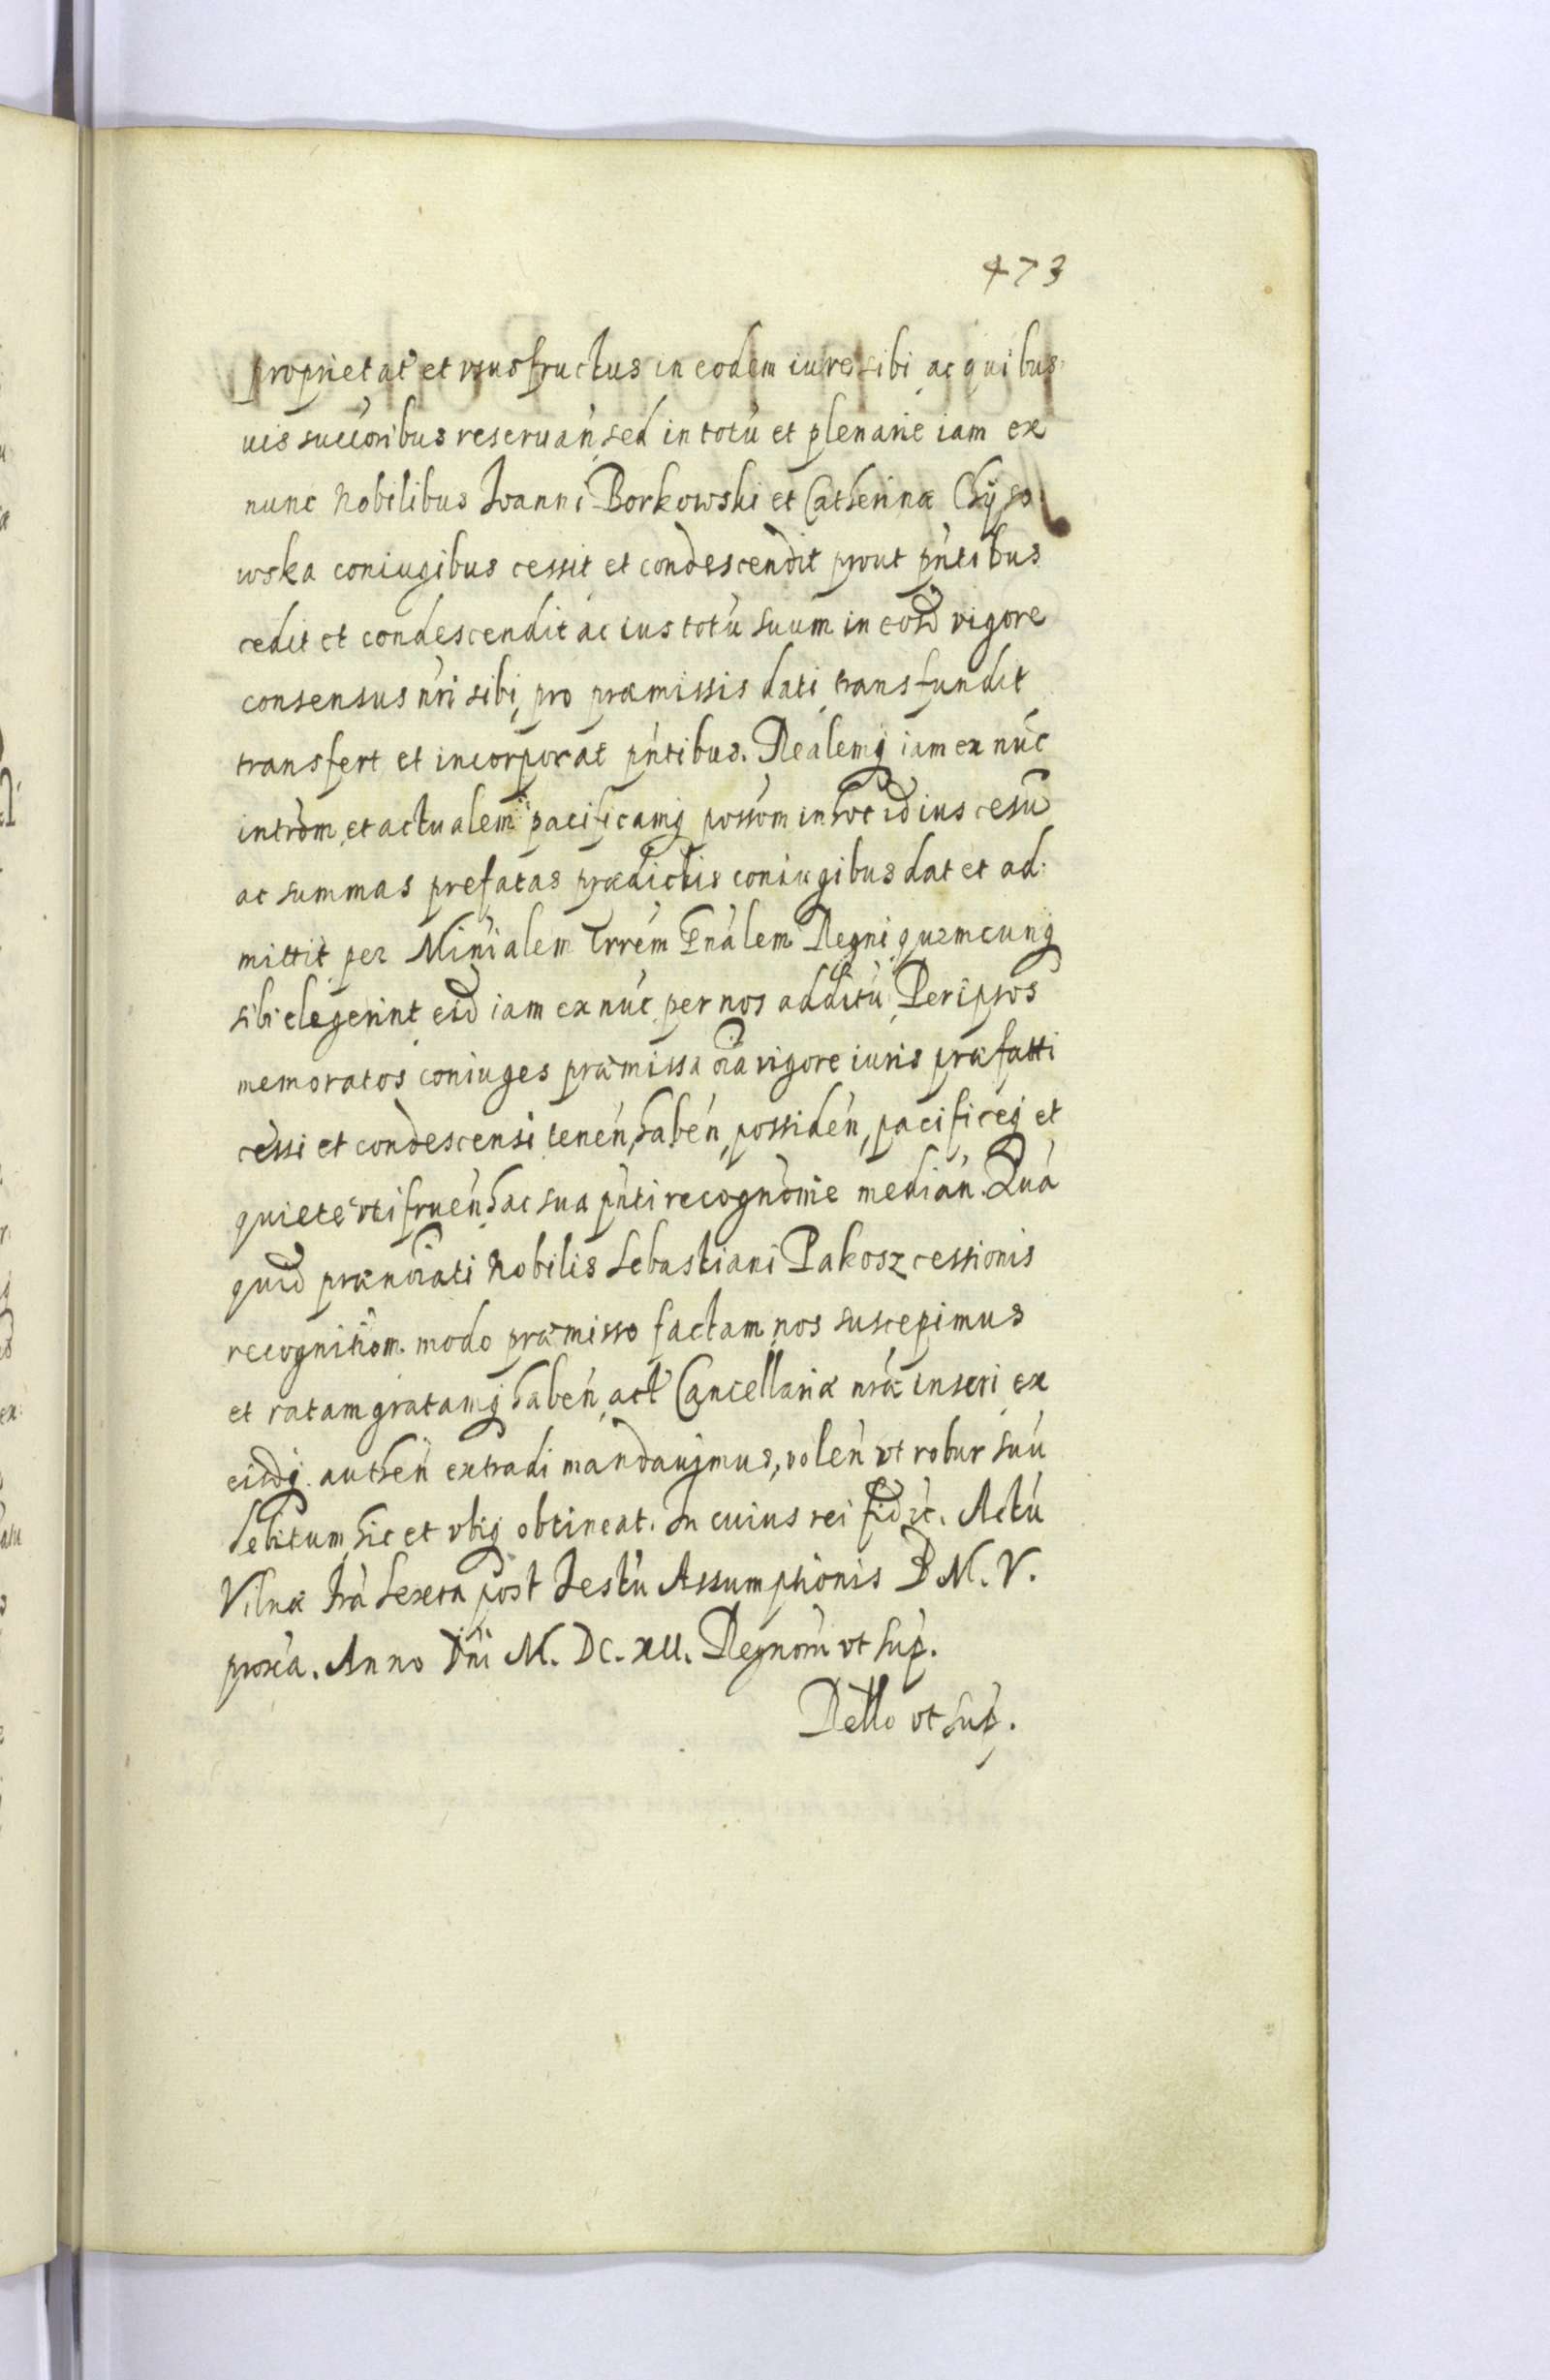 473
proprietat et vsusfructus in eodem iure sibi ac quibus
uis succoribus reseruan, sed in totu et plenarie iam ex
nunc Nobilibus Ioanni Borkowski et Catherinæ Chyʒo
wska coniugibus cessit et condescendit prout pntibus
cedit et condescendit ac ius totu suum in eosd vigore
consensus nri sibi, pro præmissis dati transfundit
transfert et incorporat pntibus. Realemq iam ex nuc
introm, et actualem pacificamq possom in hoc id ius cesu
ac summas prefatas prædictis coniugibus dat et ad
mittit per Minialem trrem Gnalem Regni quemcunq
sibi elegerint eid iam ex nuc per nos additu Per ipsos
memoratos coniuges præmissa oia vigore iuris præfatti
cessi et condescensi tenen, haben, possiden, pacificeq et
quiete vtifruen hac sua pnti recognonie median. Qua
quid prænoiati Nobilis Sebastiani Pakosz cessionis
recognitiom modo præmisso factam nos suscepimus
et ratam gratamq haben, act Cancellariæ nræ inseri ex
eisdq authen extradi mandauimus, volen vt robur suu
debitum hic et vbiq obtineat. In cuius rei fid etc. Actu
Vilnæ fra sexta post festu Assumptionis B M. V.
proxa. Anno Dni M. DC. XII. Regnoru vt sup.
Rello vt sup.